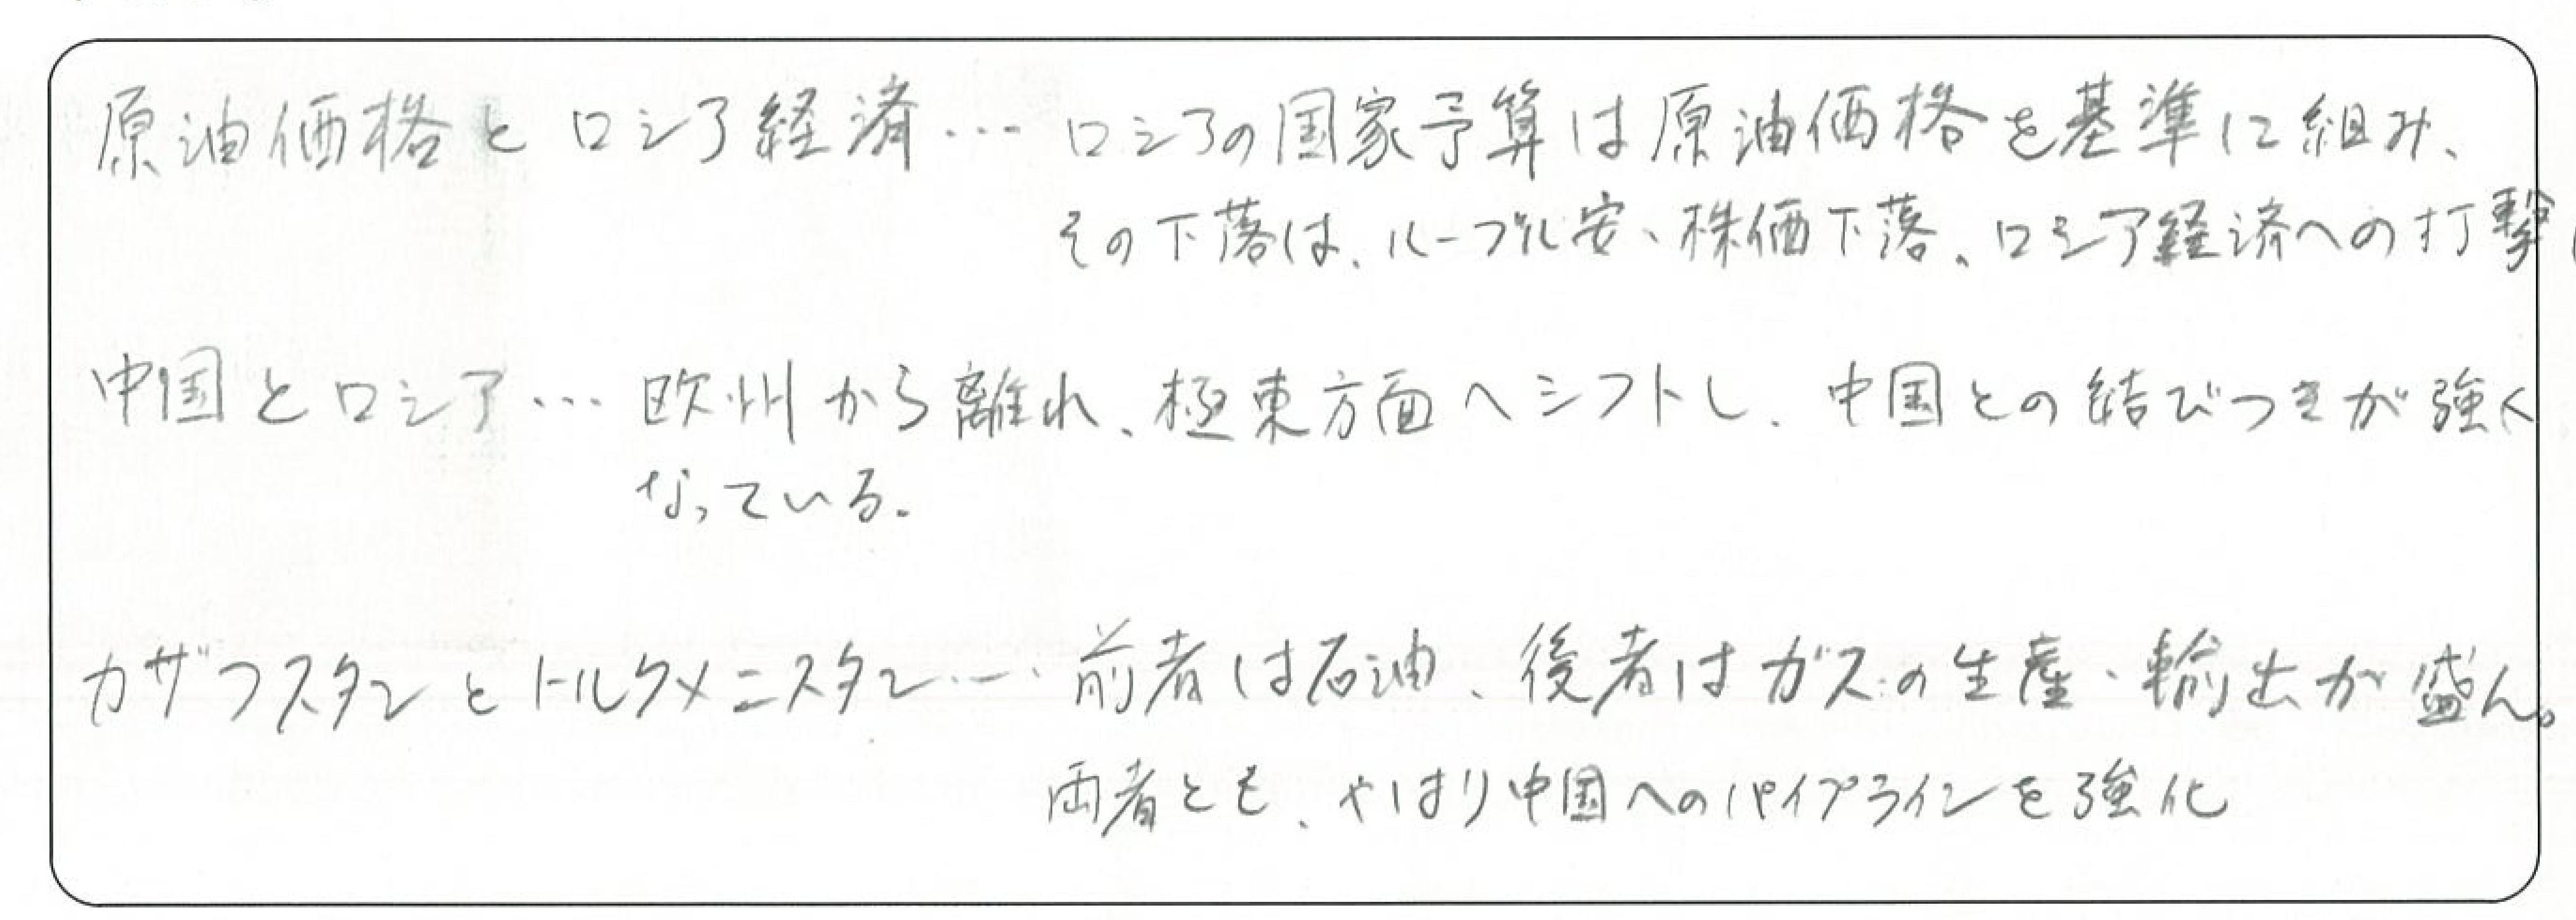 原油価格とロシア経済… ロシアの国家予算は原油価格を基準に組み、
その下落は、ルーブル安、株価下落、ロシア経済への打撃
中国とロシア… 欧州から離れ、極東方面へシフトし、中国との結びつきが強く
なっている。
カザフスタンとトルクメニスタン… 前者は石油、後者はガスの生産・輸出が盛ん。
両者とも、やはり中国へのパイプラインを強化